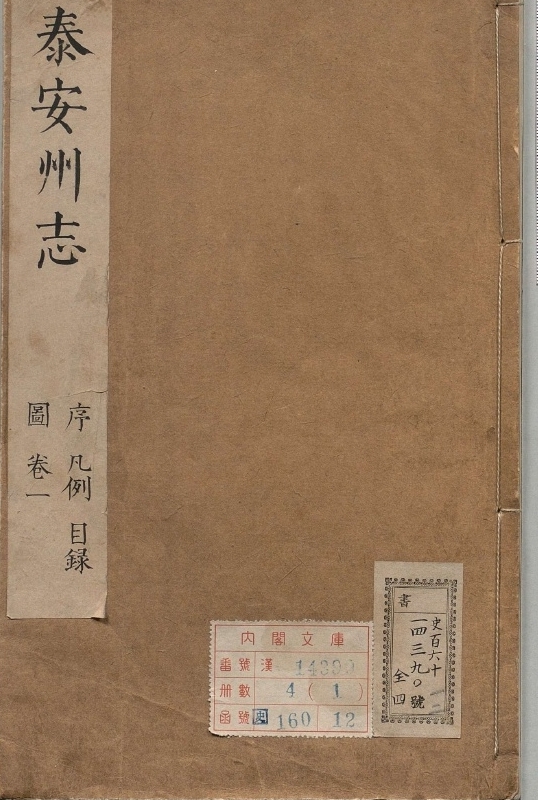 泰安州志
序 凡例 目錄
圖 卷一
内閣文庫
番號 漢 14390
册數 4 (1)
函號 史 160 12
書
史百六十
一四三九〇號
全四